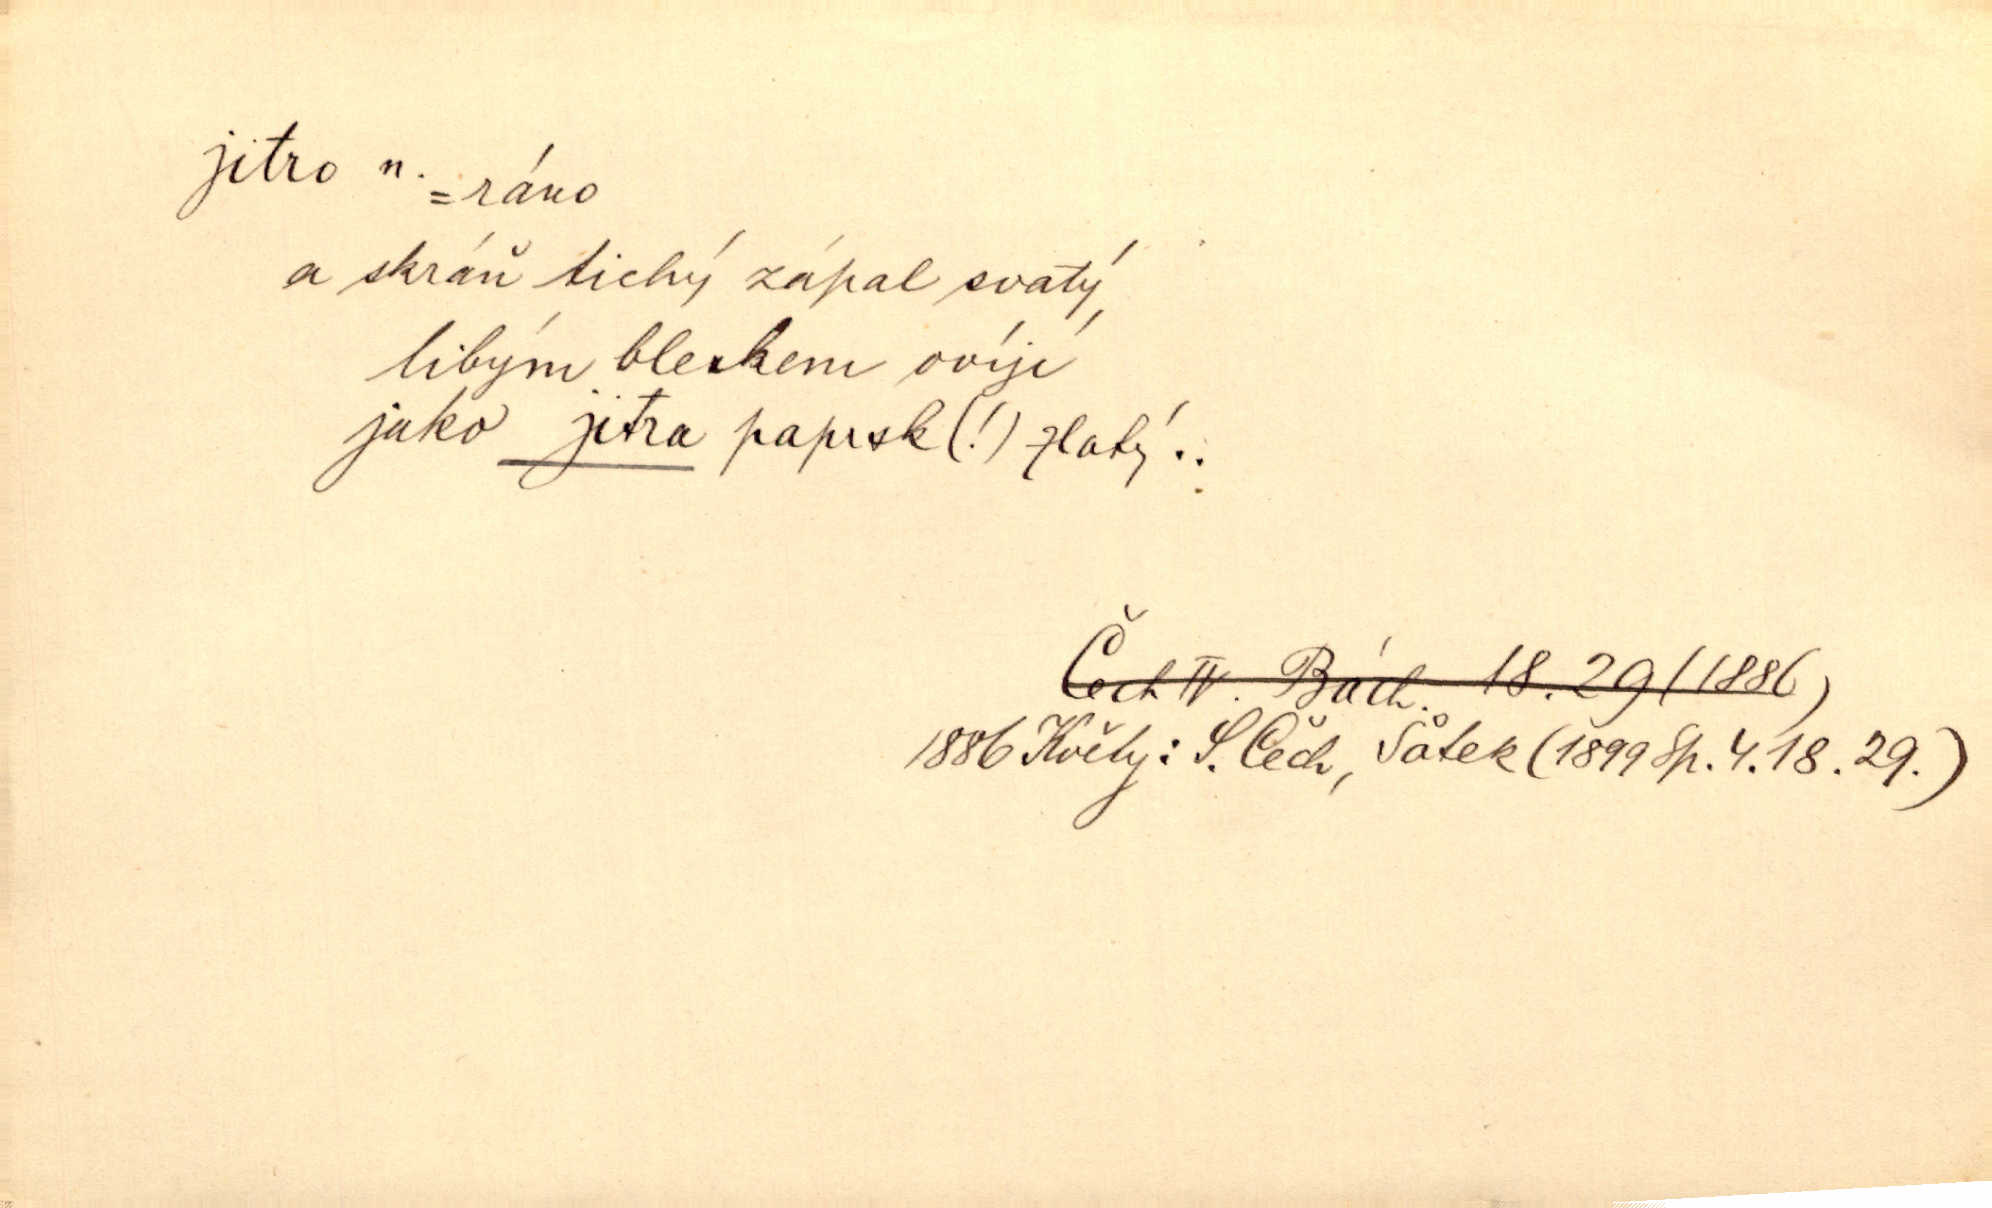 jitro n. = ráno
a skráň tichý zápal svatý
libým bleskem ovíjí
jako jitra paprsk(!) zlatý..
Čech IV. Bách. 18. 29 (1886)
1886 Květy: S. Čech, Šátek (1899 Sp. 4. 18. 29.)